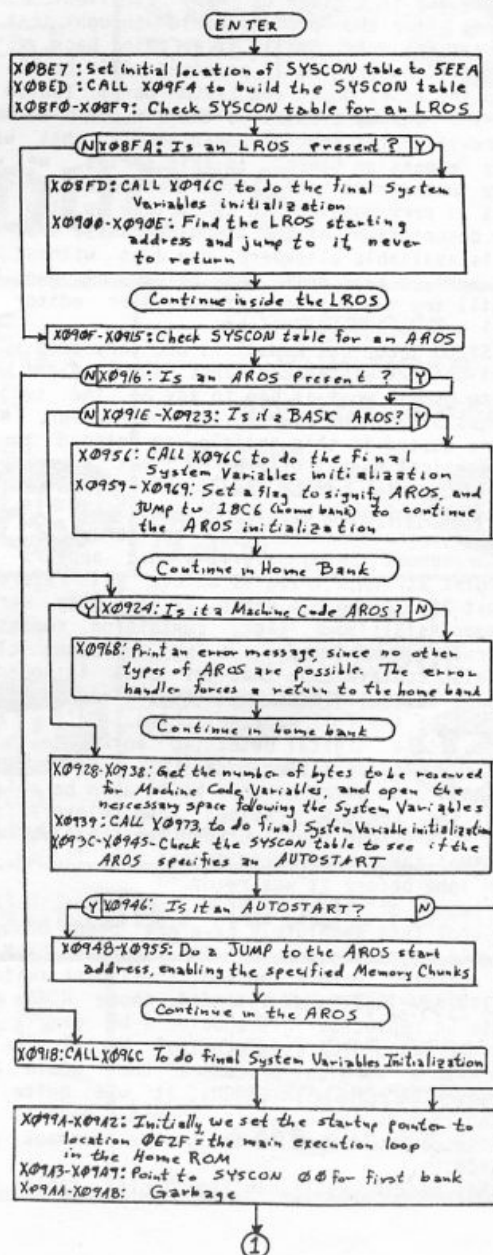 ENTER
XØ8E7: Set initial location of SYSCON table to 5EEA
XØ8ED: CALL XØ9F4 to build the SYSCON table
XØ8FØ-XØ8F9: Check SYSCON table for an LROS
N XØ8FA: Is an LROS Present? Y
XØ8FD: CALL XØ96C to do the final System
Variables initialization
XØ9ØØ-XØ9ØE: Find the LROS starting
address and jump to it never
to return
Continue inside the LROS
XØ9ØF-XØ915: Check SYSCON table for an AROS
N XØ916: Is an AROS Present? Y
N XØ91E-XØ923: Is it a BASIC AROS? Y
XØ956: CALL XØ96C to do the final
System Variables initialization
XØ959-XØ969: Set a flag to signify AROS, and
JUMP to 18C6 (home bank) to continue
the AROS initialization
Continue in Home Bank
Y XØ924: Is it a Machine Code AROS? N
XØ968: Print an error message, since no other
types of AROS are possible. The error
handler forces a return to the home bank
Continue in home bank
XØ928-XØ938: Get the number of bytes to be reserved
for Machine Code Variables, and open the
nescessary space following the System Variables
XØ939: CALL XØ973, to do final System Variable initialization
XØ93C-XØ945-Check the SYSCON table to see if the
AROS specifies an AUTOSTART
Y XØ946: Is it an AUTOSTART? N
XØ948-XØ955: Do a JUMP to the AROS start
address, enabling the specified Memory Chunks
Continue in the AROS
XØ918: CALL XØ96C To do final System Variables Initialization
XØ99A-XØ9A2: Initially we set the startup pointer to
location ØE2F = the main execution loop
in the Home ROM
XØ9A3-XØ9A9: Point to SYSCON ØØ for first bank
XØ9AA-XØ9AB: Garbage
1